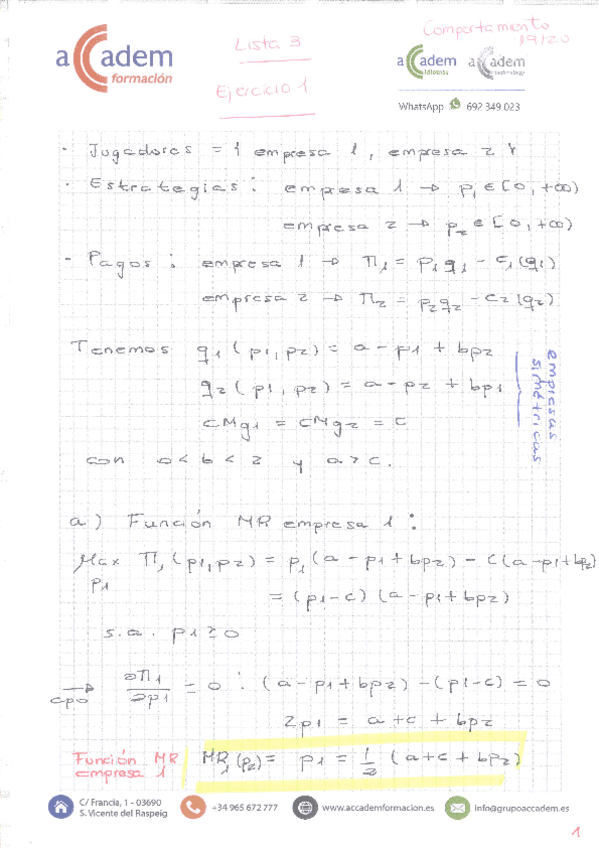 accadem formación
Lista 3
Ejercicio 1
Comportamiento
19/20
accadem idiomas
accadem
WhatsApp 692 349 023
- Jugadores = { empresa 1, empresa 2 }
- Estrategias: empresa 1 → p₁ ∈ [0, +∞)
empresa 2 → p₂ ∈ [0, +∞)
- Pagos: empresa 1 → Π₁ = p₁q₁ - C₁(q₁)
empresa 2 → Π₂ = p₂q₂ - C₂(q₂)
Tenemos q₁(p₁, p₂) = a - p₁ + bp₂
q₂(p₁, p₂) = a - p₂ + bp₁
CMg₁ = CMg₂ = C
con 0 < b < 2 y a > c.
empresas simétricas
a) Función MR empresa 1:
Max Π₁(p₁, p₂) = p₁(a - p₁ + bp₂) - C(a - p₁ + bp₂)
p₁
= (p₁ - c)(a - p₁ + bp₂)
s.a. p₁ ≥ 0
→ CPO ∂Π₁/∂p₁ = 0 : (a - p₁ + bp₂) - (p₁ - c) = 0
2p₁ = a + c + bp₂
Función MR empresa 1 | MR₁(p₂) = p₁ = 1/2 (a + c + bp₂)
C/ Francia, 1 - 03690
S. Vicente del Raspeig
+34 965 672 777
www.accademformacion.es
info@grupoaccadem.es
1